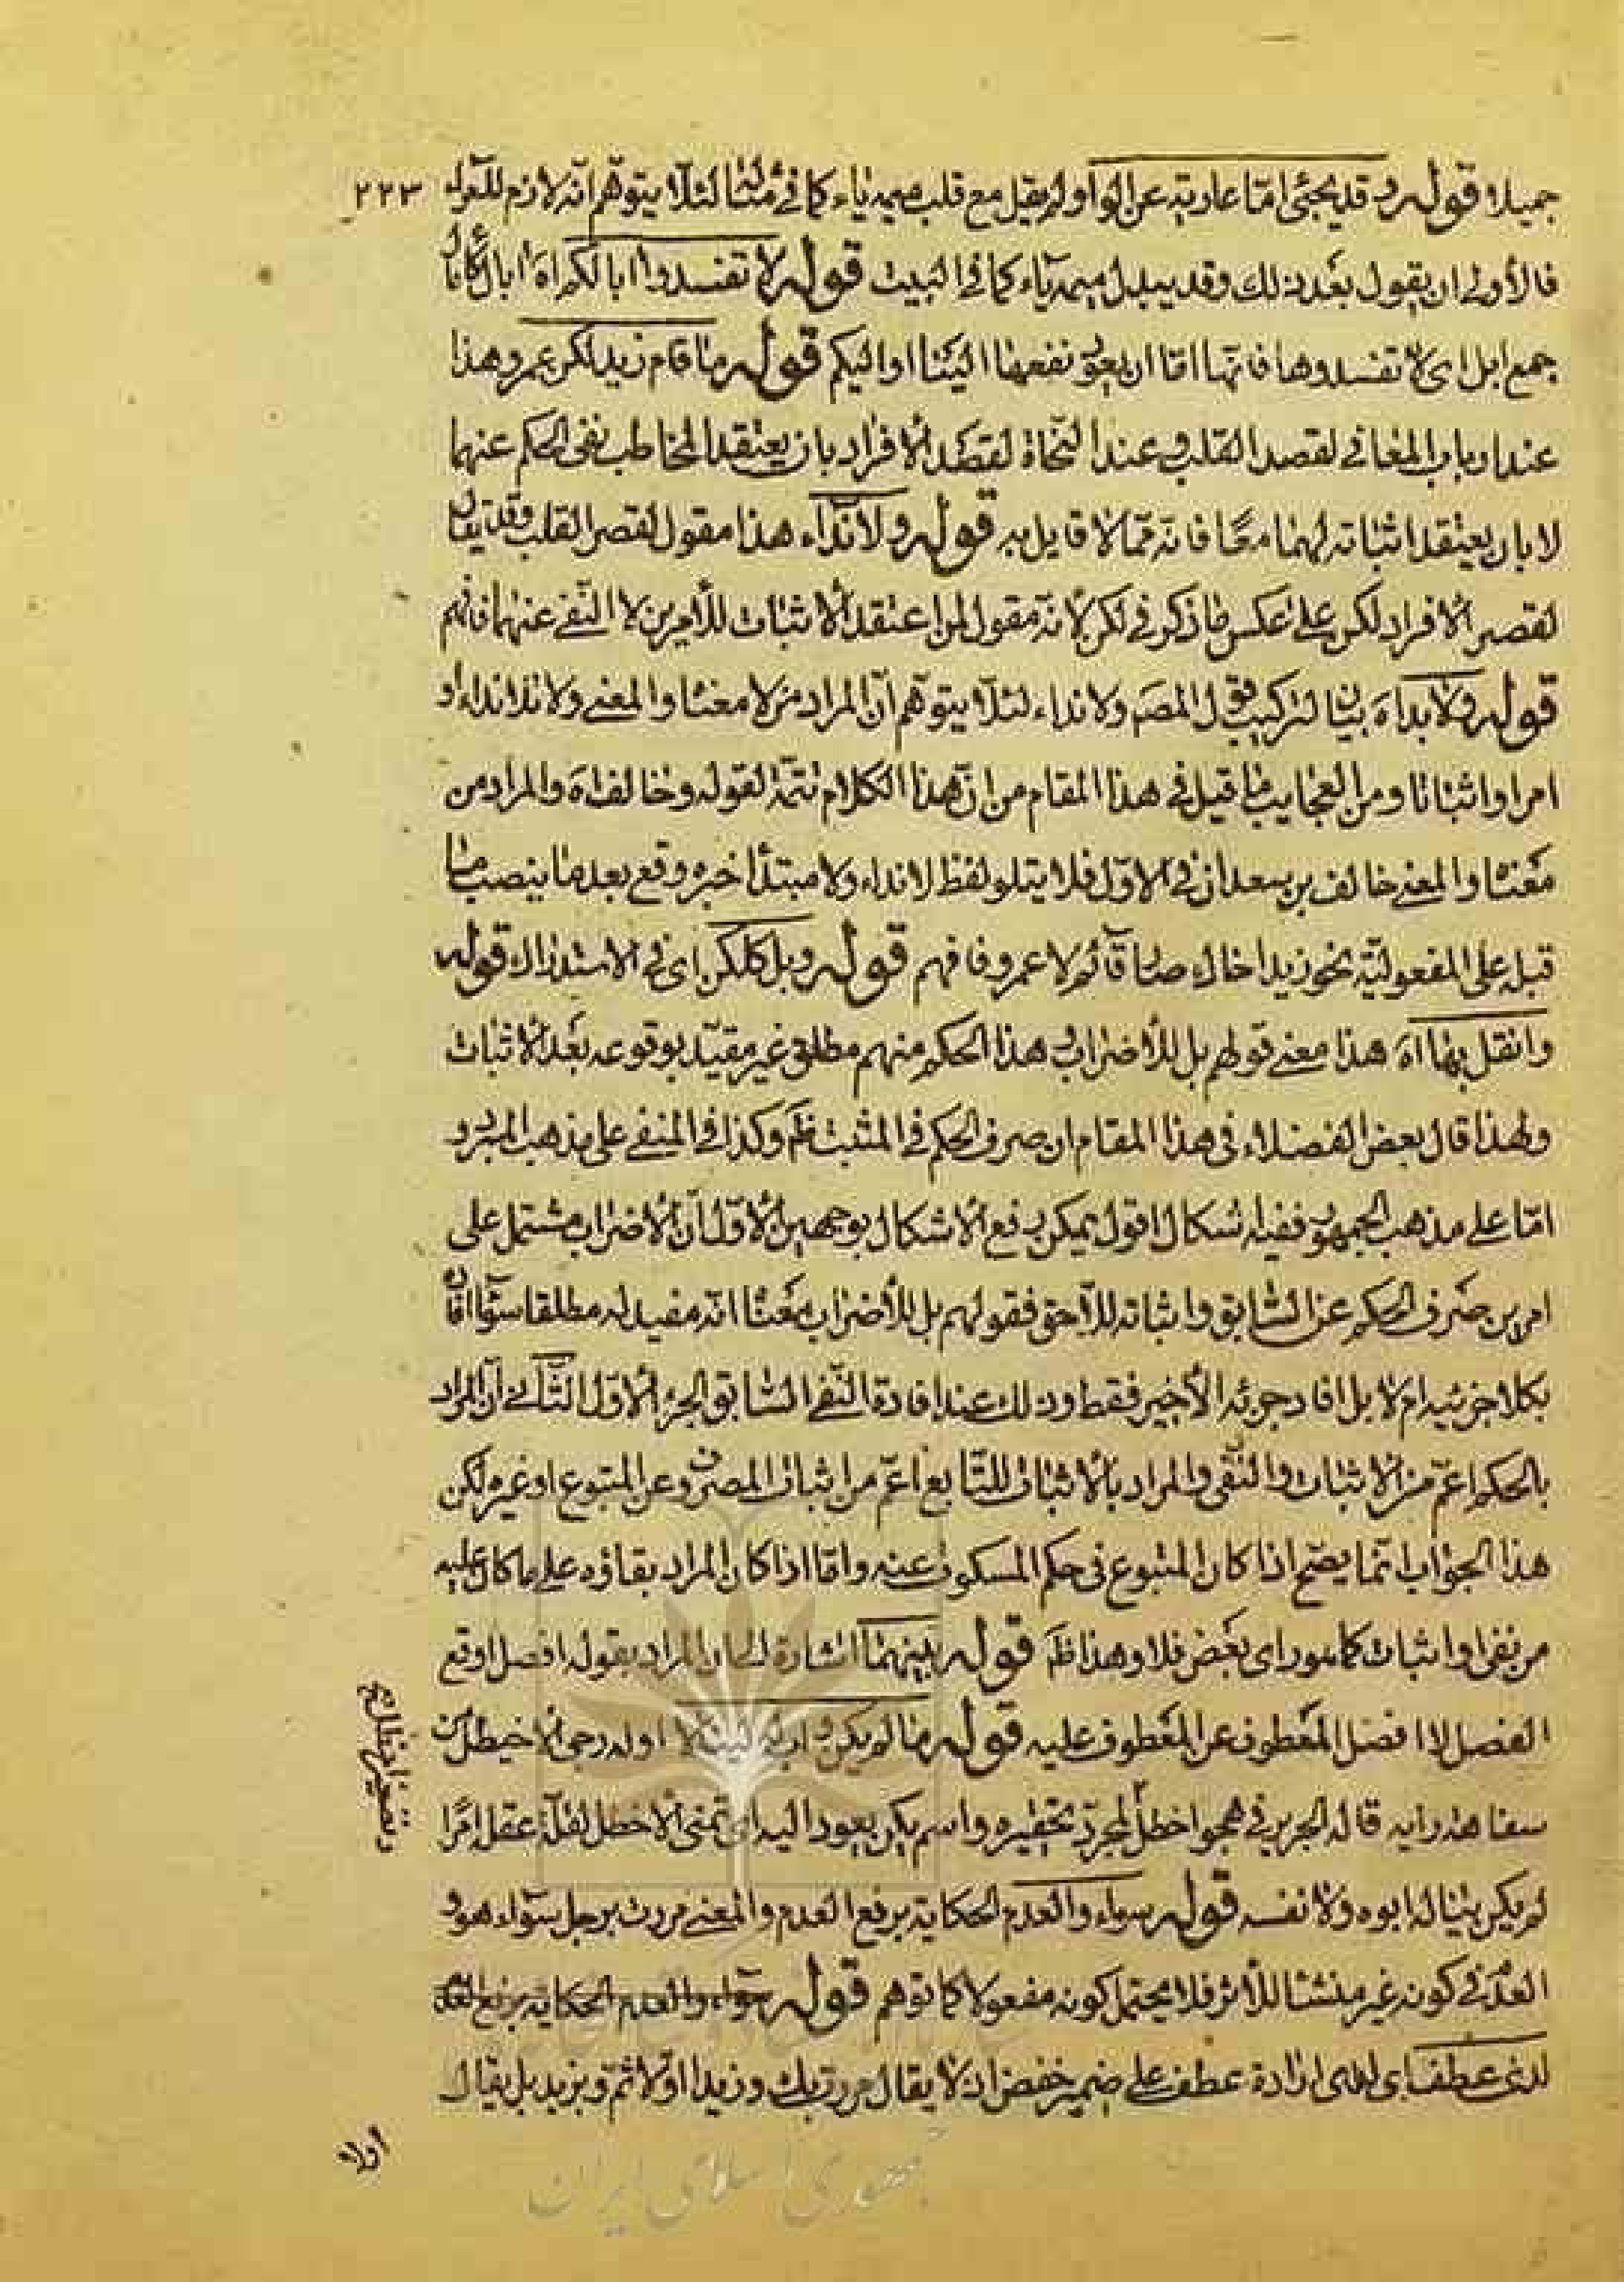 جميلا قوله وقد يجئ امّا عارية عن الواو ولم يقل مع قلب ميمه ياء كما في مثالنا لئلّا يتوهم انه لازم للعراء ٢٢٣
فالأولى ان يقول بعد ذلك وقد يبدل ميمه ياء كما في البيت قوله لا تفسدوا ابا لكم اه ابال
جمع ابل اى لا تفسدوها فانها امّا ان يعود نفعها الينا او اليكم قوله ما قام زيد لكن عمرو هذا
عند ارباب المعاني لقصد القلب وعند النحاة لقصد الافراد بان يعتقد المخاطب نفى الحكم عنهما
لا بان يعتقد اثباته لهما معًا فانه ممّا لا قايل به قوله ولا نداء هذا مقول لقصر القلب وقد يقال
لقصر الافراد لكن على عكس ما ذكر في لكن لأنه مقول لمن اعتقد الاثبات للأمرين لا النفي عنهما فافهم
قوله ولا نداء اه بيان لتركيب قول المصَ ولا نداء لئلّا يتوهم أنّ المراد من لا معنا والمعنى ولا نداء او
امرا واثباتا ومن العجايب ما قيل في هذا المقام من ان هذا الكلام تتمة لقوله وخالف اه والمراد من
معنا والمعنى خالف بن سعدان في الاول فلا يتلو لفظ لا نداء ولا مبتدأ خبره وقع بعد ما ينصب ما
قبله على المفعولية نحو زيدا خالد صار قائم لا عمرو فافهم قوله وبل كلكن اى في الاستدراك قوله
وانقل بها اه هذا معنى قولهم بل للأضراب هذا الحكم منهم مطلق غير مقيّد بوقوعه بعد الاثبات
ولهذا قال بعض الفضلاء في هذا المقام ان صرف الحكم في المثبت ظَم وكذا في المنفي على مذهب المبرد و
امّا على مذهب الجمهور ففيه اشكال اقول يمكن دفع الاشكال بوجهين الأوّل أنّ الأضراب مشتمل على
امرين صرف الحكم عن السّابق واثباته للاّحق فقولهم بل للأضراب معنا انّه مفيد له مطلقا سوآء افاد
بكلا جزئيه ام لا بل افاد جزئه الأخير فقط وذلك عند افادة النّفى السّابق الجزء الاوّل الثّاني أنّ المراد
بالحكم اعمّ من الاثبات والنّفى والمراد بالاثبات للتّابع اعمّ من اثبات المصروف عن المتبوع او غيره لكن
هذا الجواب انّما يصّح اذا كان المتبوع في حكم المسكوت عنه وامّا اذا كان المراد بقاؤه على ما كان عليه
من نفى او اثبات كما هو راى بعض فلا وهذا ظَم قوله بينهما اشارة الى ان المراد بقوله افصل اوقع
الفصل لا افصل المعطوف عن المعطوف عليه قوله ما لم يكن واب له لينالا اوله ورجى الاخيطل من
سفاهة رايه قاله الجرير في هجو اخطل لمجرّد تحقيره واسم يكن يعود اليه اى تمنى الاخطل لقلة عقله امرًا
لم يكن ينال ابوه ولا نفسه قوله سواء والعدم الحكاية برفع العدم والمعنى مررت برجل سوآء هو و
العدم في كونه غير منشئا للأثر فلا يحتمل كونه مفعولا كما توهم قوله سوآء والعدم الحكاية برفع العدم
لدى عطف اى لدى ارادة عطف على ضمير خفض اذ لا يقال مررت بك وزيد اوّلا ثم وبزيد بل يقال
اولا